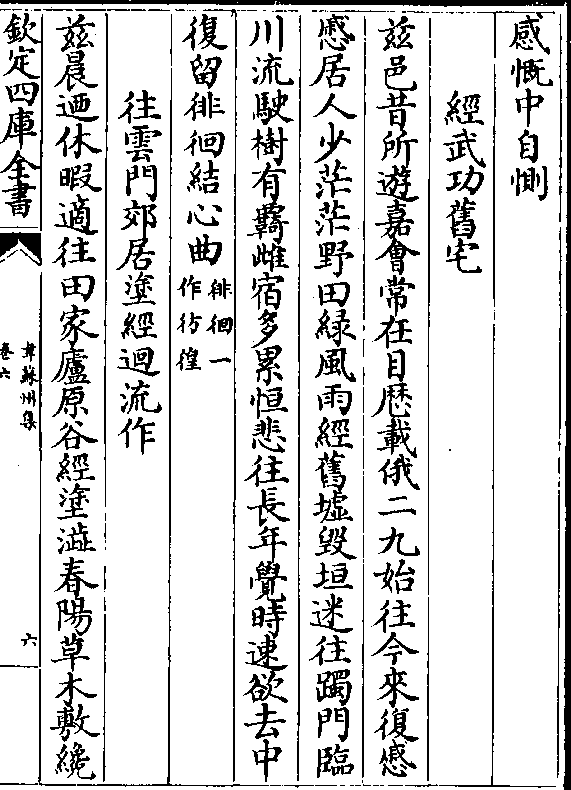 感慨中自惻
經武功舊宅
兹邑昔所遊嘉會常在目歴載俄二九始往今來復感
慼居人少茫茫野田緑風雨經舊墟毁垣迷往躅門臨
川流駛樹有羇雌宿多累恒悲往長年覺時速欲去中
復留徘徊結心曲徘徊一
作彷徨
往雲門郊居塗經迴流作
兹晨廼休暇適往田家廬原谷經塗澁春陽草木敷纔
欽定四庫全書
韋蘇州集
卷六
六